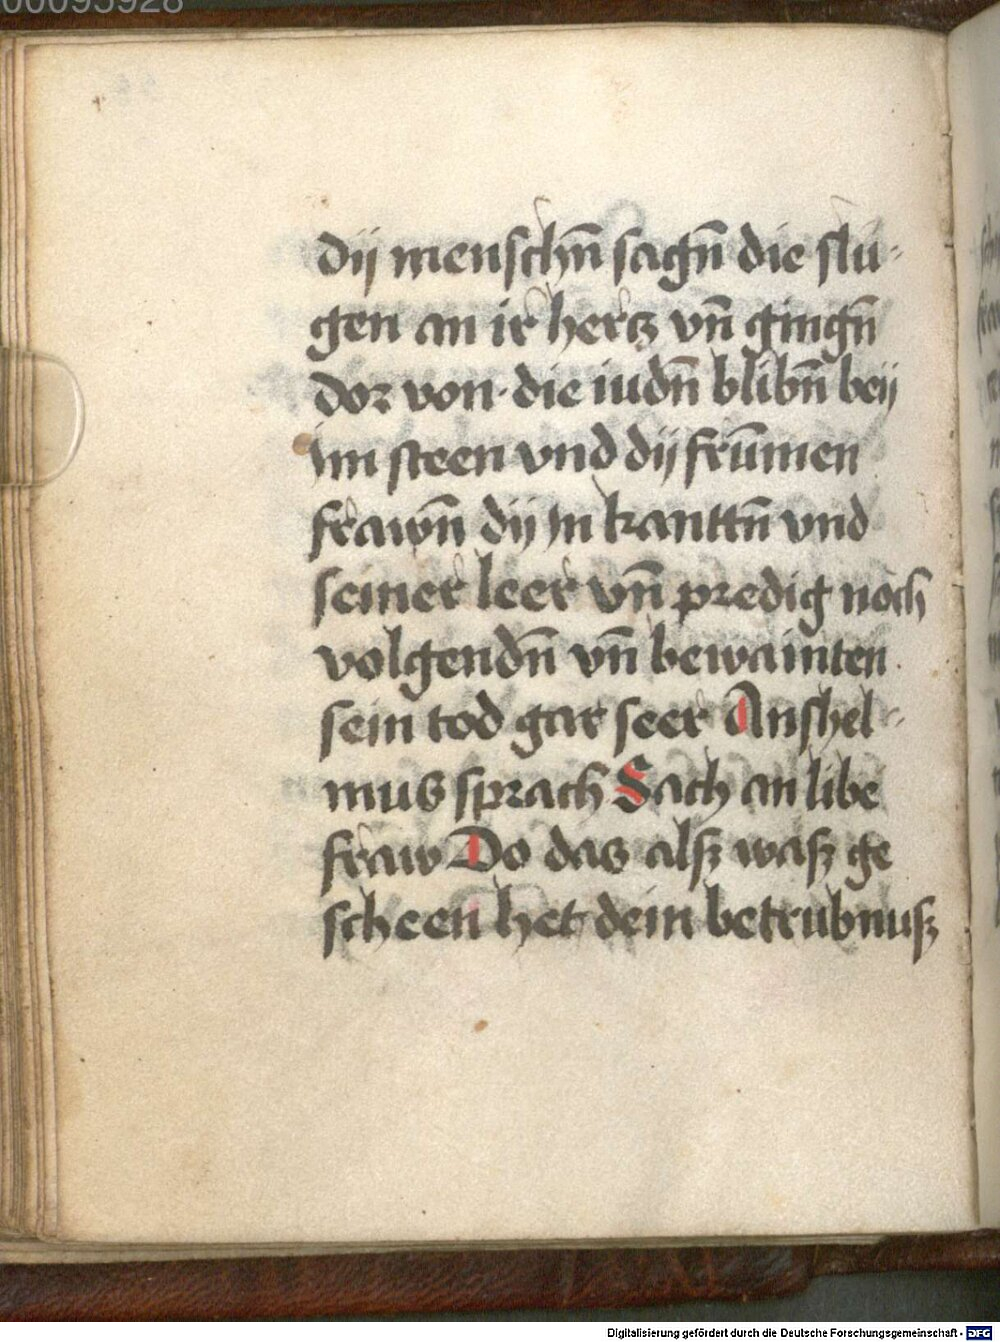 00095928
dij menschn̄ sagn̄ die slu-
gen an ir hertz vn̄ gingn̄
dor von · die iudn̄ blibn̄ beij
im steen vnd dij frūmen
frawn̄ dij in kanttn̄ vnd
seiner leer vn̄ predig noch
volgendn̄ vn̄ bewainten
sein tod gar seer Anshel-
mus sprach Sach an libe
fraw Do das alsz wasz ge
scheen het dein betrubnusz
Digitalisierung gefördert durch die Deutsche Forschungsgemeinschaft - DFG